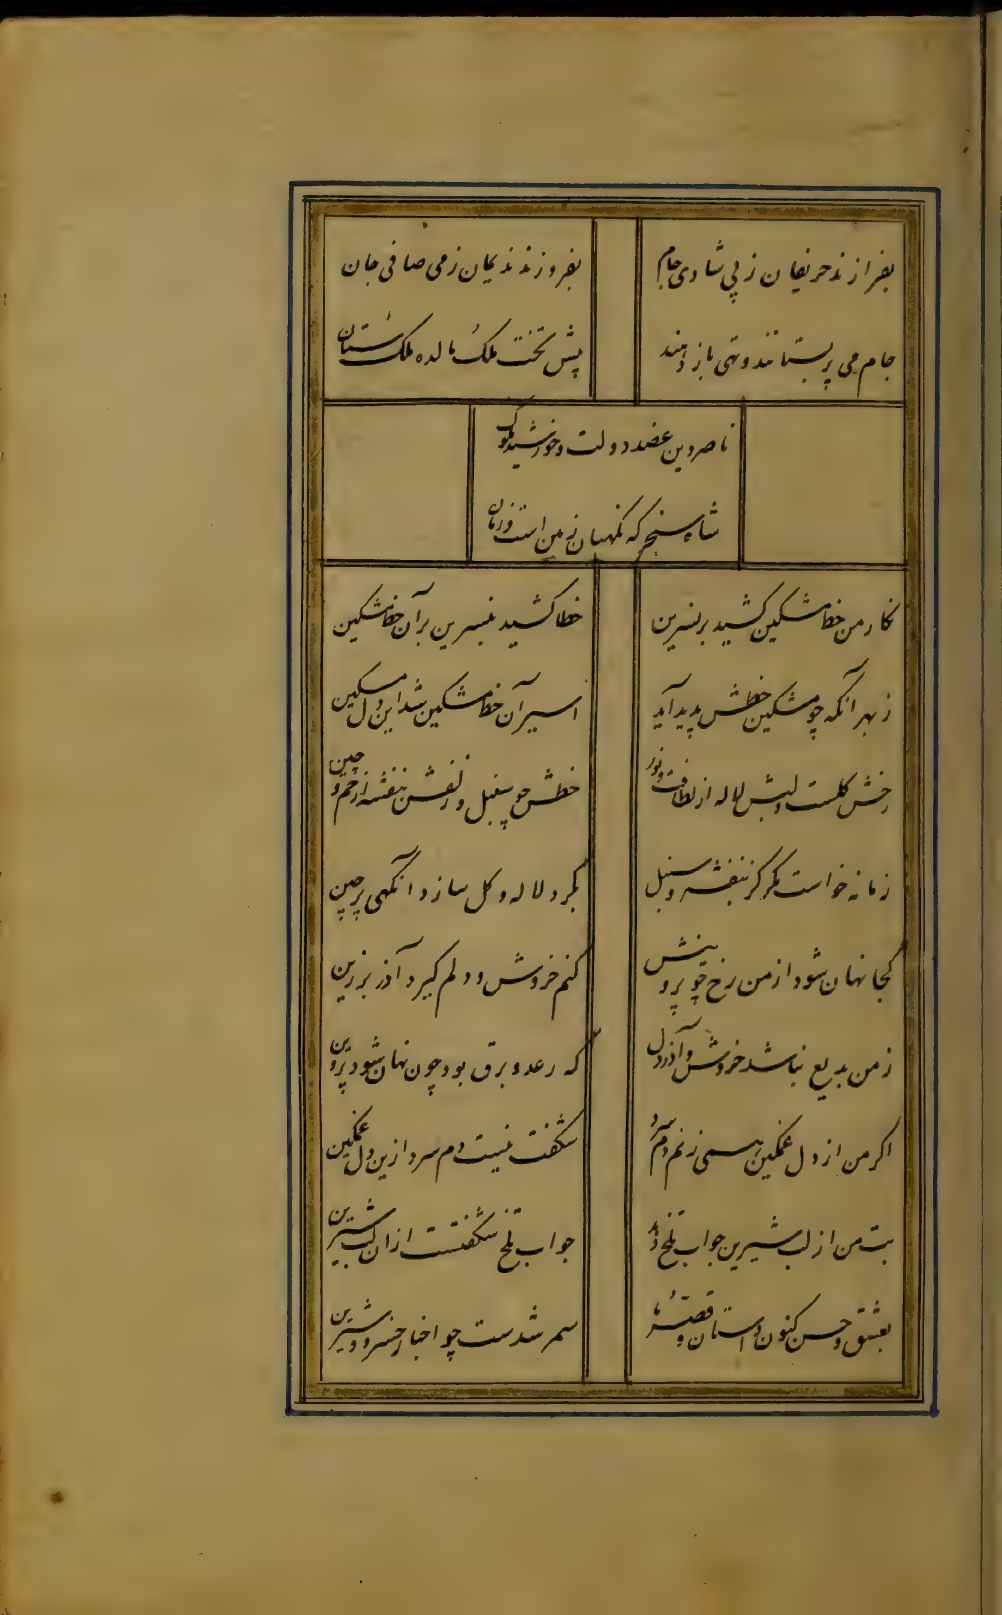 بفرازند حریفان ز پی شادی جام
بفروزند ندیمان ز می صافی جان
جام می پر بستانند و تهی باز دهند
پیش تخت ملک مالده ملک ستان
ناصر دین عضد دولت و خورشید ملوک
شاه سنجر که نگهبان زمین است و زمان
نکار من خط مشکین کشید بر نسرین
خطا کشید بنسرین بر آن خط مشکین
ز بهر آنکه چو مشکین خطش پدید آید
اسیر آن خط مشکین شد این دل مسکین
رخش کلست و لبش لاله از لطافت و نور
خطش چو سنبل و زلفش بنفشه از خم و چین
زمانه خواست مکر کز بنفشه و سنبل
بکرد لاله و کل سازد آنکهی پرچین
کجا نهان شود از من رخ چو پروینش
کنم خروش و دلم کیرد آذر برزین
ز من بدیع نباشد خروش و آذر دل
که رعد و برق بود چون نهان شود پروین
اکر من از دل غمکین همی زنم دم سرد
شکفت نیست دم سرد ازین دل غمکین
بت من از لب شیرین جواب تلخ دهد
جواب تلخ شکفتست از ان لب شیرین
بعشق و حسن کنون داستان و قصه ما
سمر شدست چو اخبار خسرو و شیرین